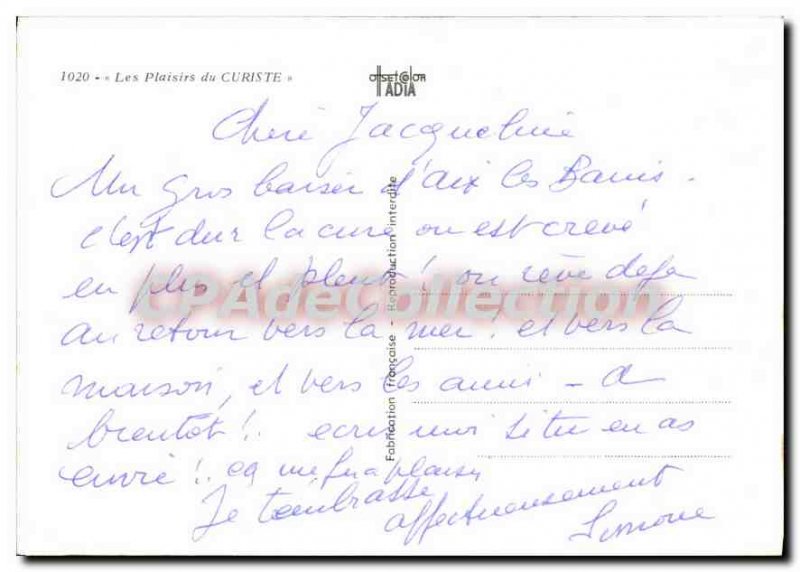 1020 - « Les Plaisirs du CURISTE »
OFFSET COLOR
ADIA
Chère Jacqueline
Un gros baiser d'aix les Bains.
c'est dur la cure on est crevé
en plus il pleut! on rêve deja
au retour vers la mer! et vers la
maison, et vers les amis - a
bientôt!. ecris moi si tu en as
envie!. ça me fera plaisir
Je t'embrasse
affectueusement
Simone
Fabrication française - Reproduction interdite
CPAdeCollection